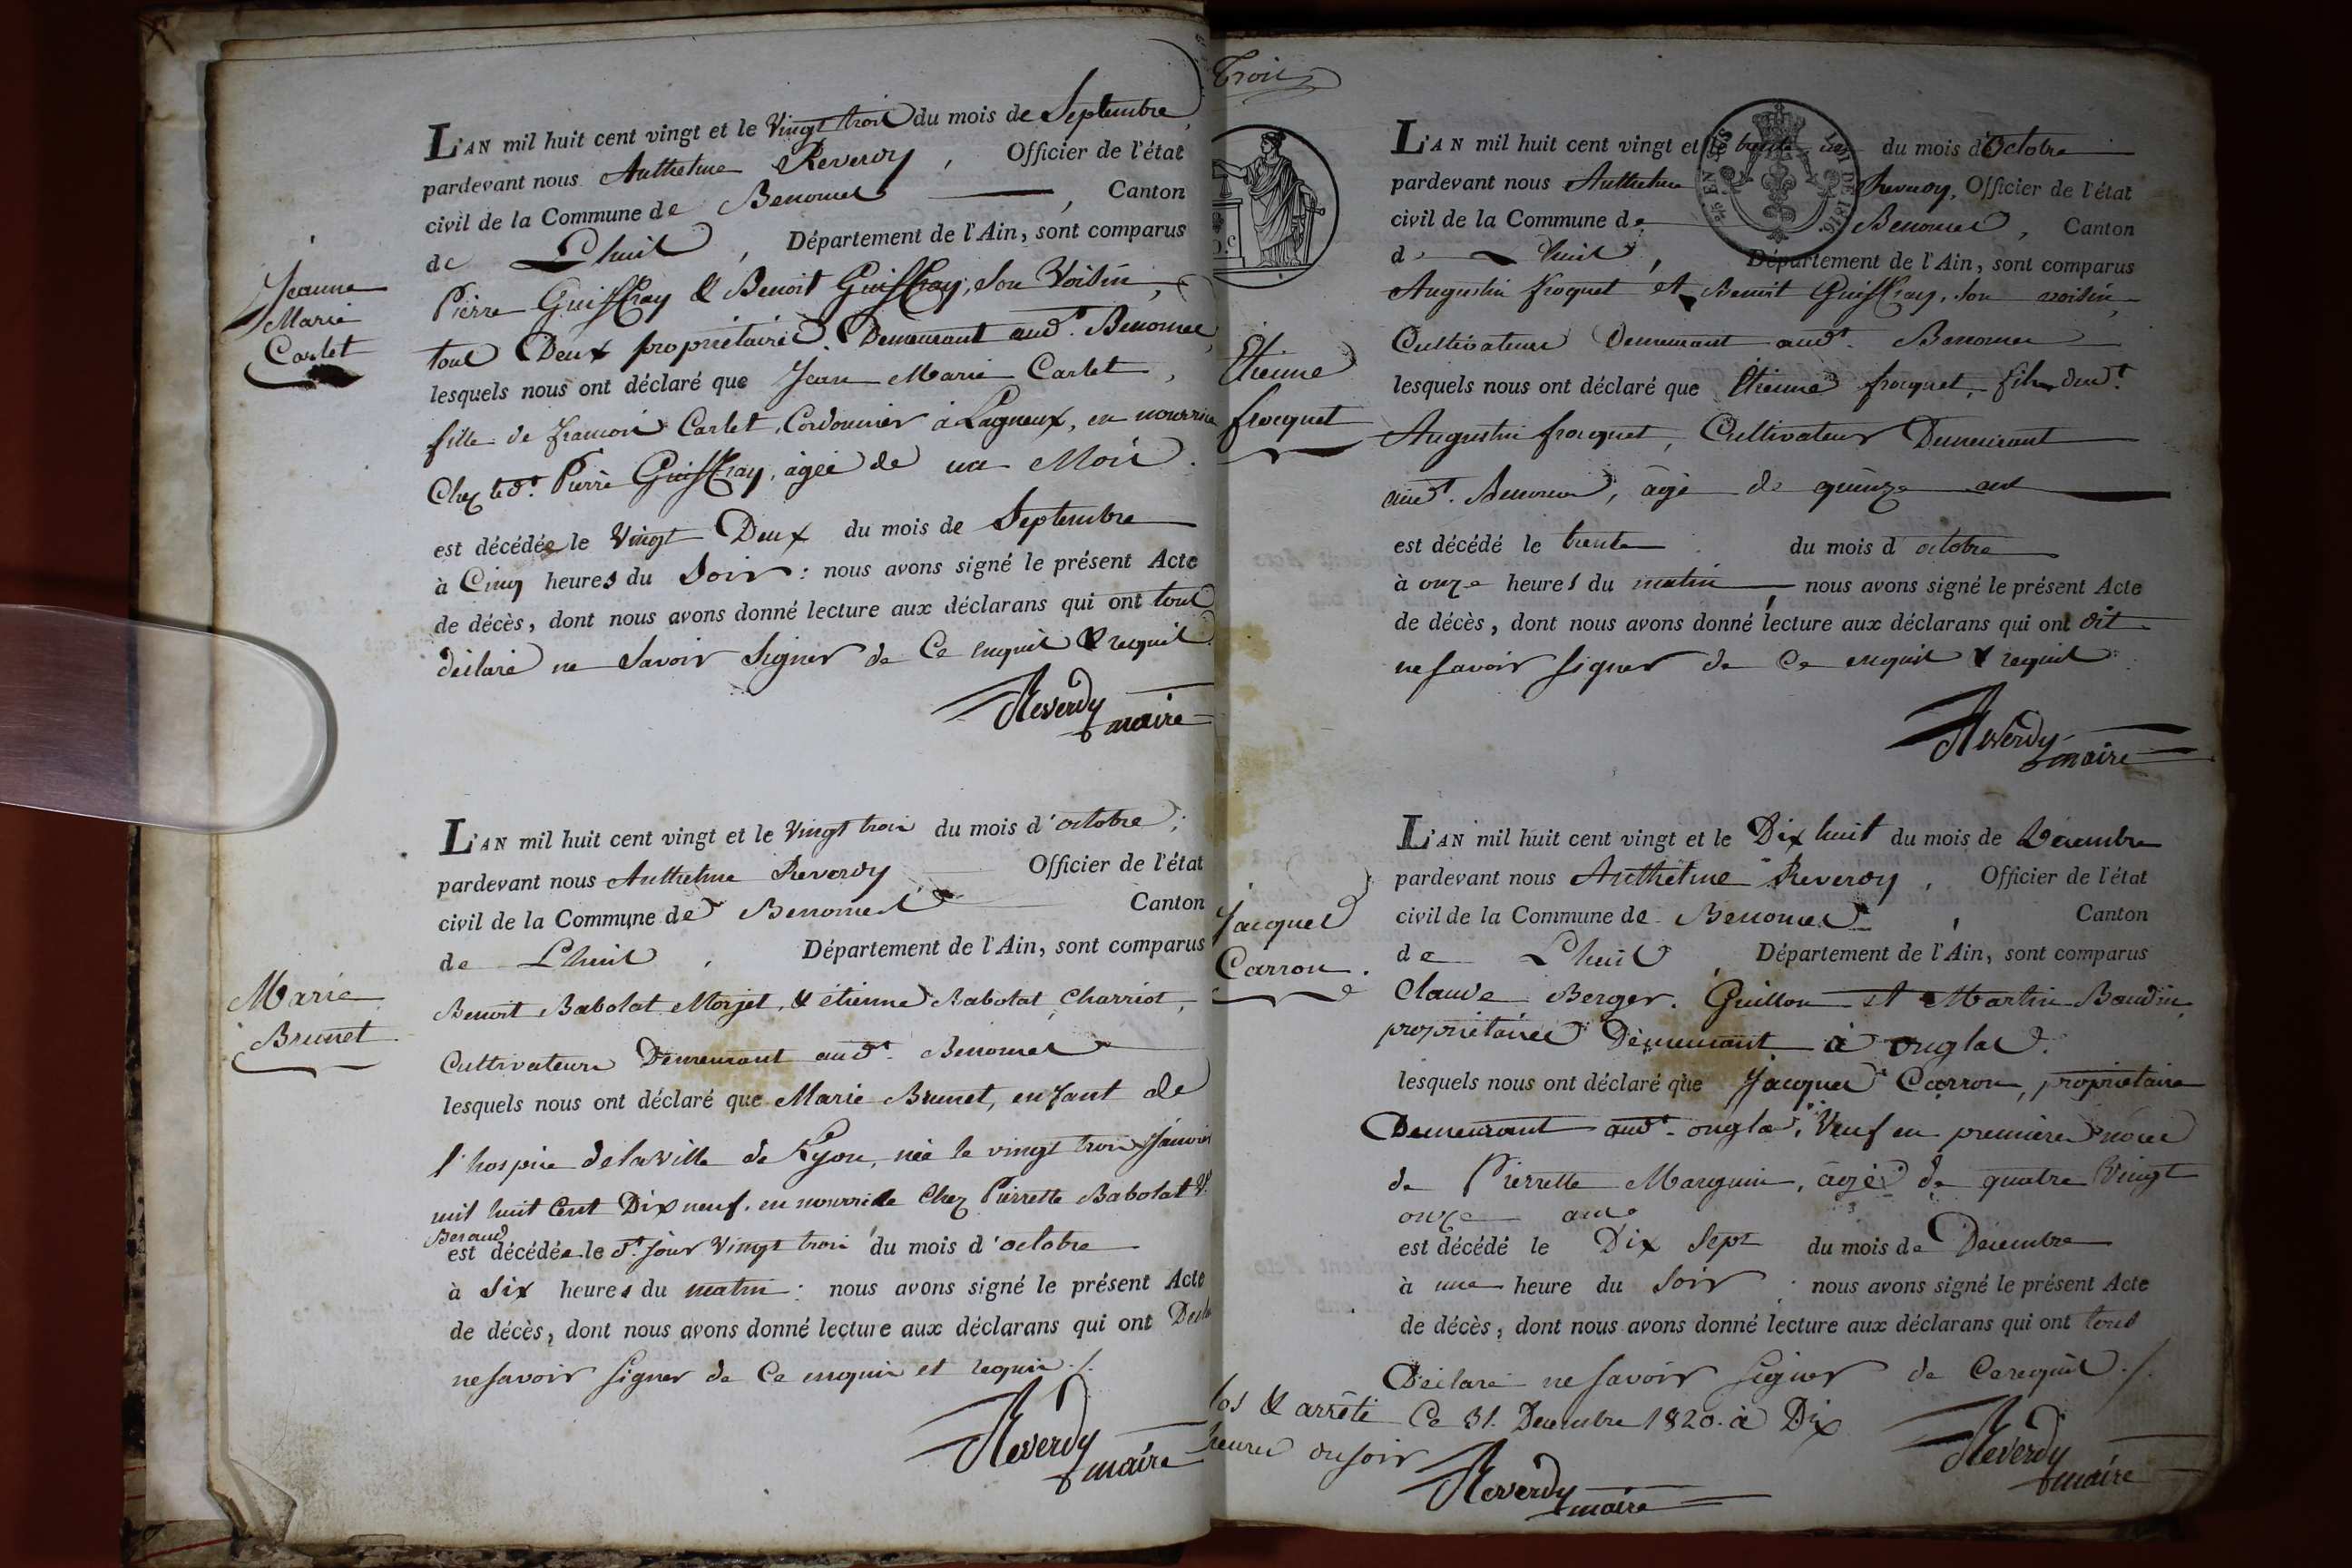 Jeanne
Marie
Carlet
L'AN mil huit cent vingt et le Vingt trois du mois de Septembre
pardevant nous Anthelme Reverdy, Officier de l'état
civil de la Commune de Benonces, Canton
de Lhuis, Département de l'Ain, sont comparus
Pierre Guiffray & Benoit Guiffray, son Voisin,
tous Deux propriétaires Demeurant aud.t Benonces
lesquels nous ont déclaré que Jean Marie Carlet,
fille de françois Carlet, Cordonnier à Lagneux, en nourrice
Chez led.t Pierre Guiffray, âgée de un Mois.
est décédée le Vingt Deux du mois de Septembre
à Cinq heures du Soir : nous avons signé le présent Acte
de décès, dont nous avons donné lecture aux déclarans qui ont tous
déclaré ne Savoir Signer de Ce enquis & requis.
Reverdy
maire
Marie
Brunet
L'AN mil huit cent vingt et le Vingt trois du mois d'octobre,
pardevant nous Anthelme Reverdy Officier de l'état
civil de la Commune de Benonces Canton
de Lhuis, Département de l'Ain, sont comparus
Benoit Babolat Morjet, & étienne Babolat Charriot,
Cultivateurs Demeurant aud.t Benonces
lesquels nous ont déclaré que Marie Brunet, enfant de
l'hospice de la ville de Lyon, née le vingt trois Janvier
mil huit Cent Dix neuf. en nourrice Chez Pierrette Babolat V.e
Beraud
est décédée le d.t jour Vingt trois du mois d'octobre
à Six heures du matin : nous avons signé le présent Acte
de décès, dont nous avons donné lecture aux déclarans qui ont
ne savoir signer de Ce enquis et requis ./.
Reverdy
maire
Trois
Étienne
frocquet
L'AN mil huit cent vingt et le trente un du mois d'Octobre
pardevant nous Anthelme Reverdy, Officier de l'état
civil de la Commune de Benonces, Canton
de Lhuis, Département de l'Ain, sont comparus
Augustin frocquet et Benoit Guiffray, son voisin,
Cultivateurs Demeurant aud.t Benonces
lesquels nous ont déclaré que Étienne frocquet, fils dud.t
Augustin frocquet, Cultivateur Demeurant
aud.t Benonces, âgé de quinze ans
est décédé le trente du mois d'octobre
à onze heures du matin, nous avons signé le présent Acte
de décès, dont nous avons donné lecture aux déclarans qui ont dit
ne savoir signer de Ce enquis & requis.
Reverdy
maire
Jacques
Carron.
L'AN mil huit cent vingt et le Dix huit du mois de Décembre
pardevant nous Anthelme Reverdy, Officier de l'état
civil de la Commune de Benonces, Canton
de Lhuis, Département de l'Ain, sont comparus
Claude Berger. Guillon et Martin Baudin,
propriétaires Demeurant à onglas.
lesquels nous ont déclaré que Jacques Carron, propriétaire
Demeurant aud.t onglas, Veuf en première noces
de Pierrette Marguin, âgé de quatre Vingt
onze ans
est décédé le Dix Sept du mois de Décembre
à une heure du Soir : nous avons signé le présent Acte
de décès, dont nous avons donné lecture aux déclarans qui ont tous
Déclaré ne savoir signer de Ce requis ./.
Reverdy
maire
los & arrêté Ce 31. Decembre 1820. à Dix
heures du soir
Reverdy
maire